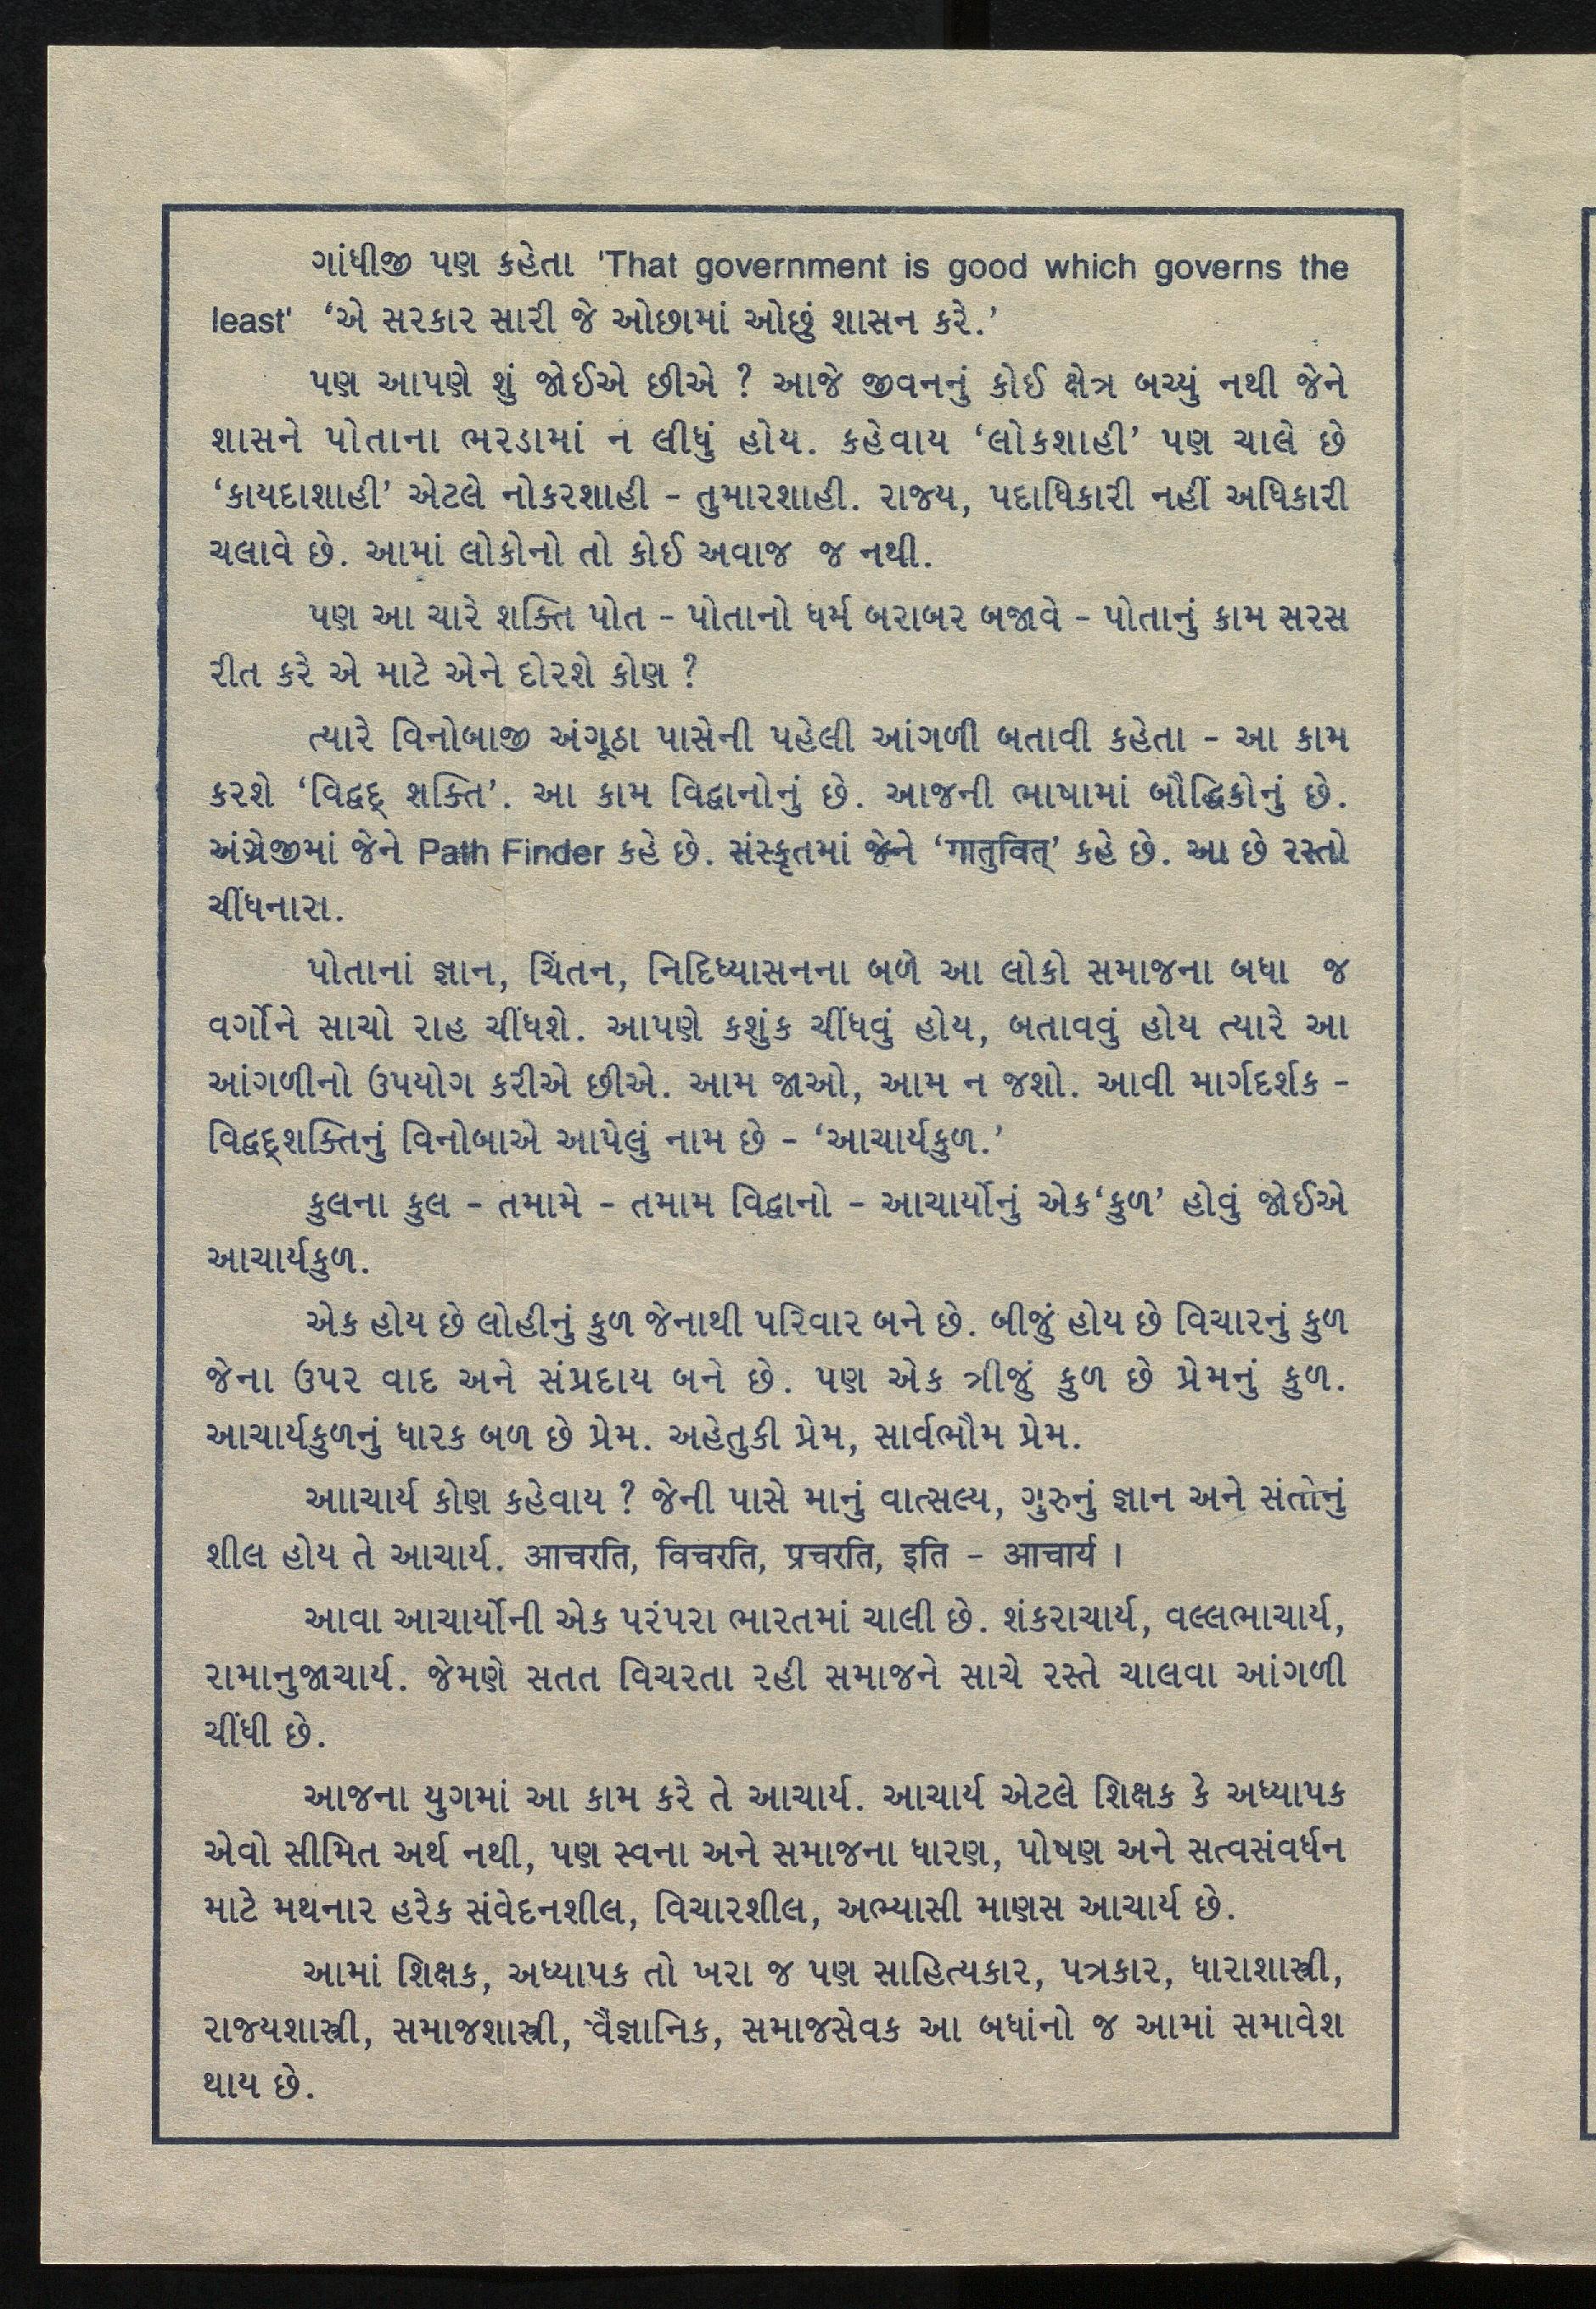 ગાંધીજી પણ કહેતા 'That government is good which governs the
least' ‘એ સરકાર સારી જે ઓછામાં ઓછું શાસન કરે.’
પણ આપણે શું જોઈએ છીએ ? આજે જીવનનું કોઈ ક્ષેત્ર બચ્યું નથી જેને
શાસને પોતાના ભરડામાં ન લીધું હોય. કહેવાય ‘લોકશાહી’ પણ ચાલે છે
‘કાયદાશાહી’ એટલે નોકરશાહી - તુમારશાહી. રાજય, પદાધિકારી નહીં અધિકારી
ચલાવે છે. આમાં લોકોનો તો કોઈ અવાજ જ નથી.
પણ આ ચારે શક્તિ પોત - પોતાનો ધર્મ બરાબર બજાવે - પોતાનું કામ સરસ
રીત કરે એ માટે એને દોરશે કોણ ?
ત્યારે વિનોબાજી અંગૂઠા પાસેની પહેલી આંગળી બતાવી કહેતા - આ કામ
કરશે ‘વિદ્વદ્ શક્તિ’. આ કામ વિદ્વાનોનું છે. આજની ભાષામાં બૌદ્ધિકોનું છે.
અંગ્રેજીમાં જેને Path Finder કહે છે. સંસ્કૃતમાં જેને ‘गातुवित्’ કહે છે. આ છે રસ્તો
ચીંધનારા.
પોતાનાં જ્ઞાન, ચિંતન, નિદિધ્યાસનના બળે આ લોકો સમાજના બધા જ
વર્ગોને સાચો રાહ ચીંધશે. આપણે કશુંક ચીંધવું હોય, બતાવવું હોય ત્યારે આ
આંગળીનો ઉપયોગ કરીએ છીએ. આમ જાઓ, આમ ન જશો. આવી માર્ગદર્શક -
વિદ્વદ્શક્તિનું વિનોબાએ આપેલું નામ છે - ‘આચાર્યકુળ.’
કુલના કુલ - તમામે - તમામ વિદ્વાનો - આચાર્યોનું એક‘કુળ’ હોવું જોઈએ
આચાર્યકુળ.
એક હોય છે લોહીનું કુળ જેનાથી પરિવાર બને છે. બીજું હોય છે વિચારનું કુળ
જેના ઉપર વાદ અને સંપ્રદાય બને છે. પણ એક ત્રીજું કુળ છે પ્રેમનું કુળ.
આચાર્યકુળનું ધારક બળ છે પ્રેમ. અહેતુકી પ્રેમ, સાર્વભૌમ પ્રેમ.
આાચાર્ય કોણ કહેવાય ? જેની પાસે માનું વાત્સલ્ય, ગુરુનું જ્ઞાન અને સંતોનું
શીલ હોય તે આચાર્ય. आचरति, विचरति, प्रचरति, इति - आचार्य ।
આવા આચાર્યોની એક પરંપરા ભારતમાં ચાલી છે. શંકરાચાર્ય, વલ્લભાચાર્ય,
રામાનુજાચાર્ય. જેમણે સતત વિચરતા રહી સમાજને સાચે રસ્તે ચાલવા આંગળી
ચીંધી છે.
આજના યુગમાં આ કામ કરે તે આચાર્ય. આચાર્ય એટલે શિક્ષક કે અધ્યાપક
એવો સીમિત અર્થ નથી, પણ સ્વના અને સમાજના ધારણ, પોષણ અને સત્વસંવર્ધન
માટે મથનાર હરેક સંવેદનશીલ, વિચારશીલ, અભ્યાસી માણસ આચાર્ય છે.
આમાં શિક્ષક, અધ્યાપક તો ખરા જ પણ સાહિત્યકાર, પત્રકાર, ધારાશાસ્ત્રી,
રાજયશાસ્ત્રી, સમાજશાસ્ત્રી, વૈજ્ઞાનિક, સમાજસેવક આ બધાંનો જ આમાં સમાવેશ
થાય છે.